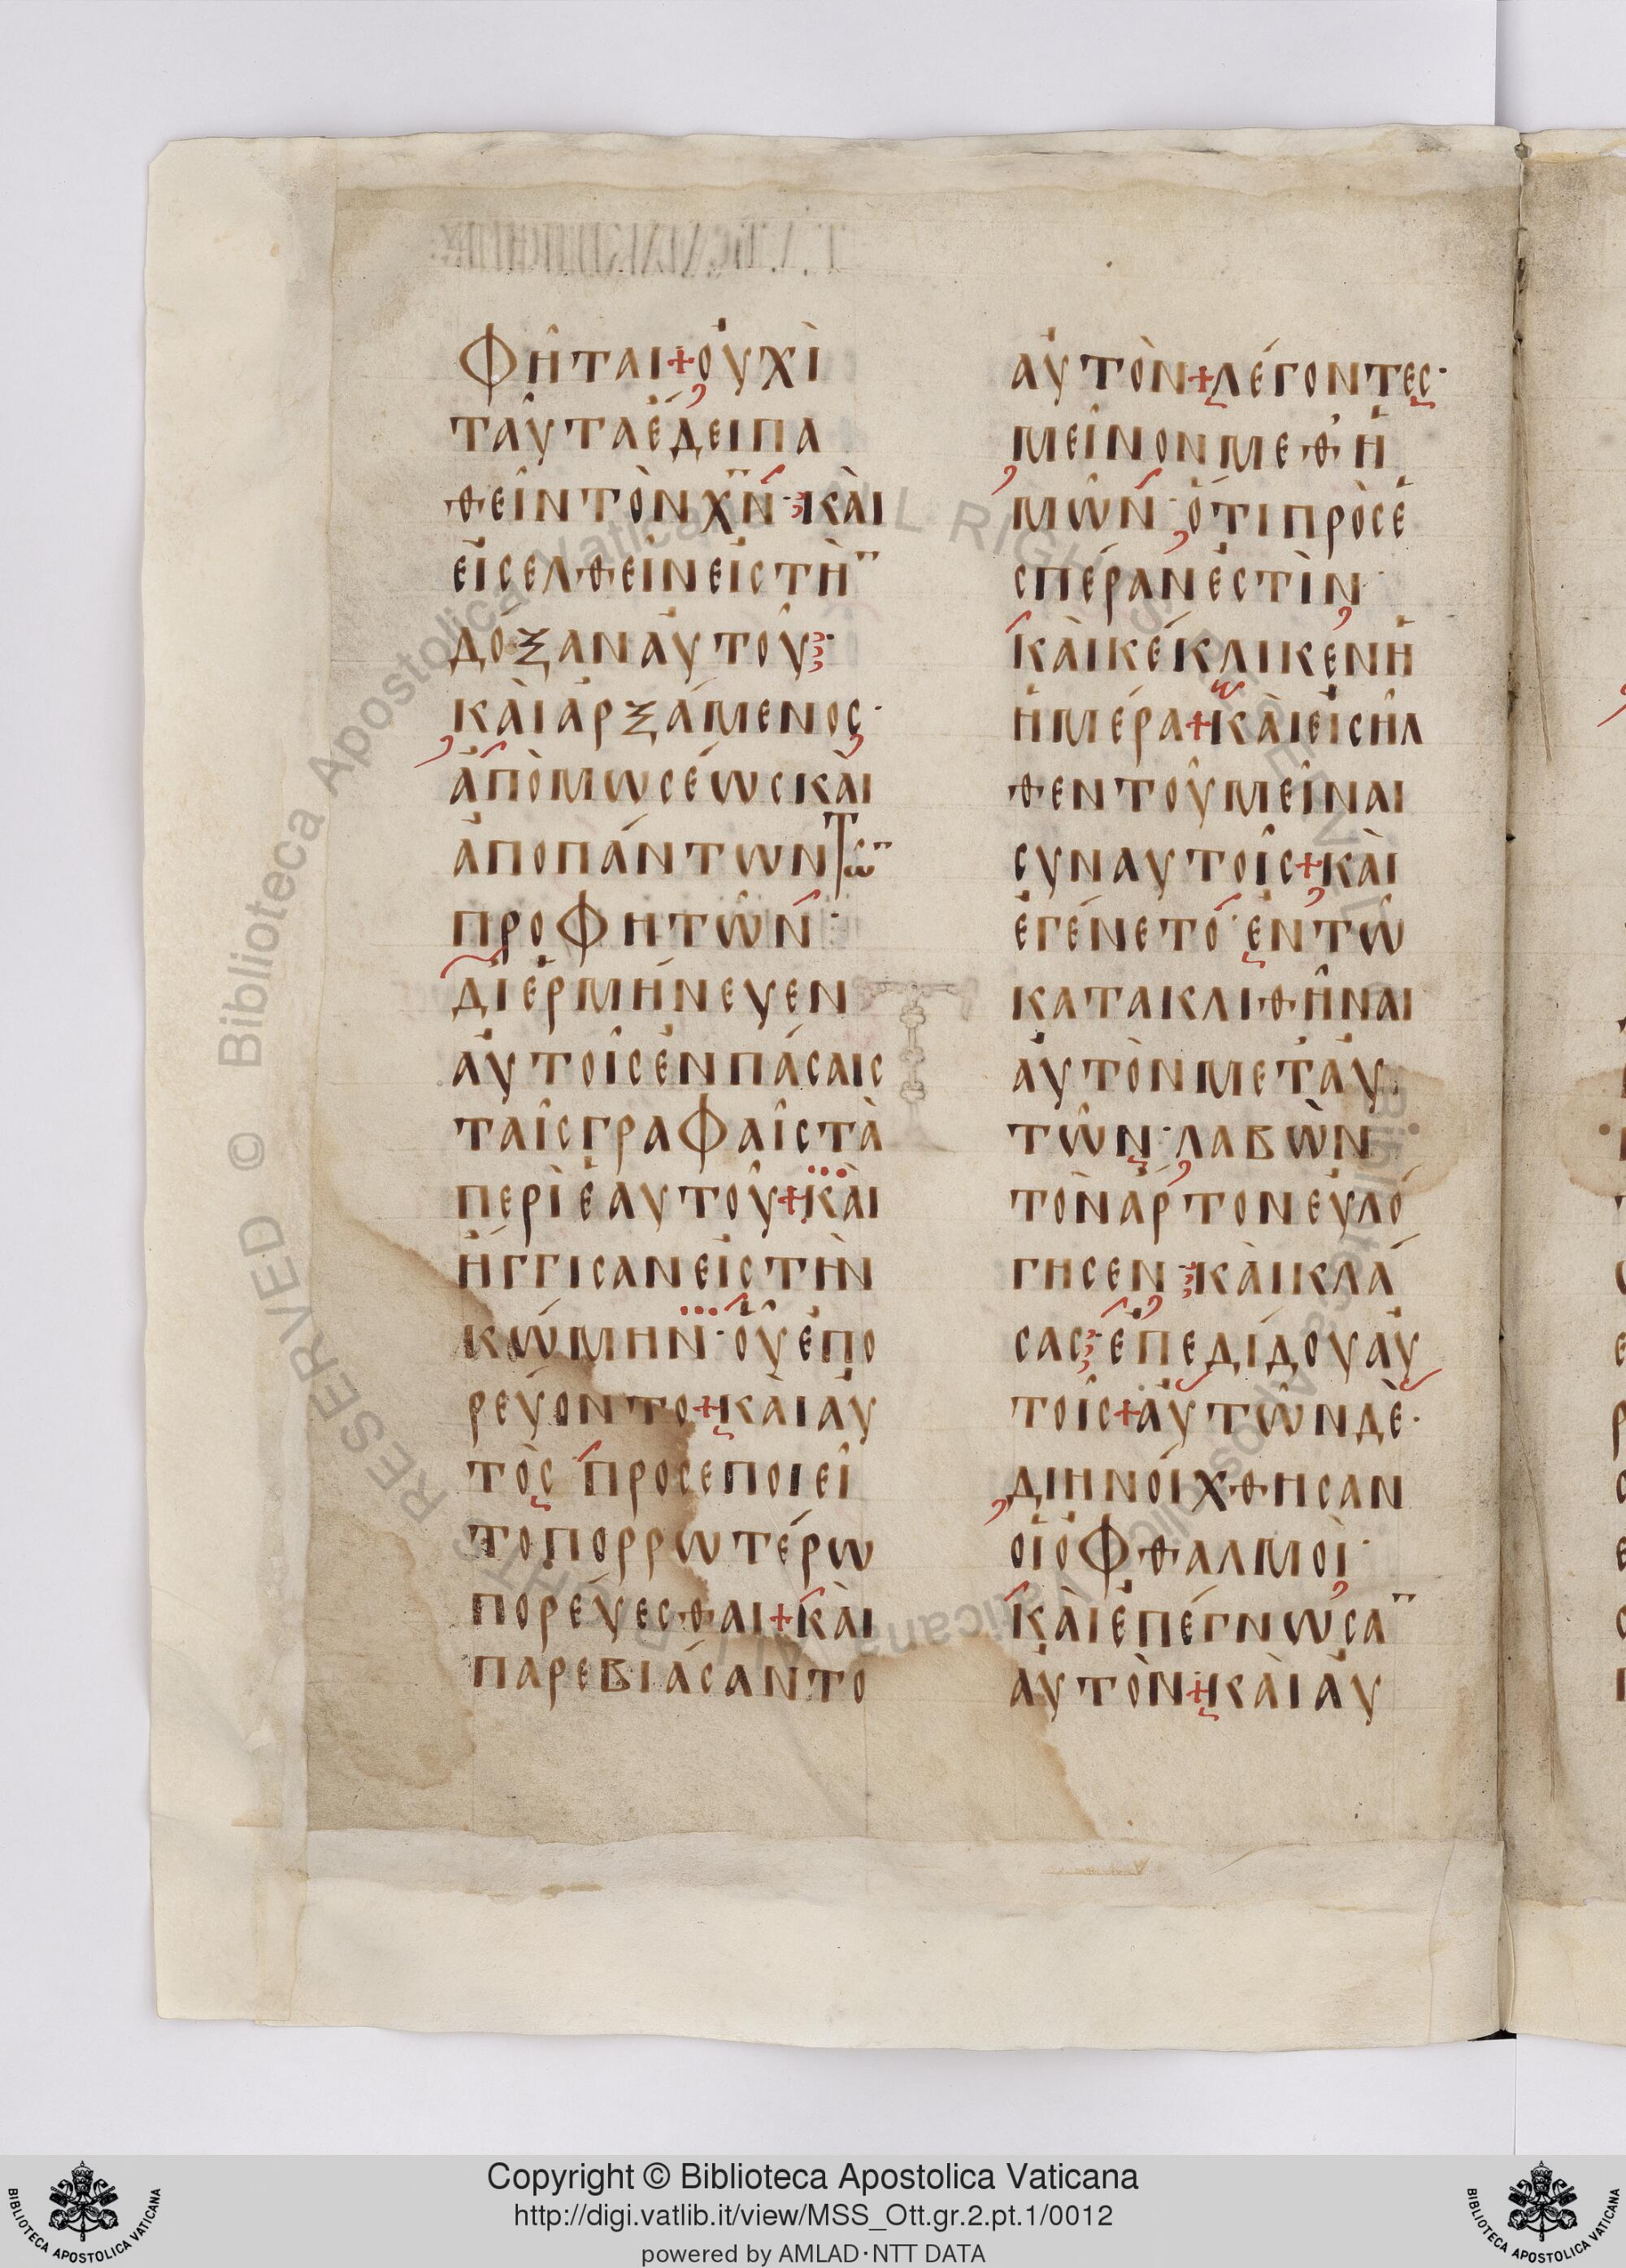 φῆται + οὐχὶ
ταῦτα ἔδει πα
θεῖν τὸν χ̅ν̅· καὶ
εἰσελθεῖν εἰς τὴ̅
δόξαν αὐτοῦ·
καὶ ἀρξάμενος·
ἀπὸ μωσέως καὶ
ἀπο πάντων τω̅
προφητῶν·
διερμήνευεν
αὐτοῖς ἐν πάσαις
ταῖς γραφαῖς τὰ
περὶ ἑαυτοῦ + καὶ
ἤγγισαν εἰς τὴν
κώμην· οὗ ἐπο
ρεύοντο + καὶ αὐ
τὸς προσεποιεῖ
το πορρωτέρω
πορεύεσθαι + καὶ
παρεβιάσαντο
αὐτὸν + λέγοντες·
μεῖνον μεθ ἡ
μῶν· ὅτι πρὸς ἑ
σπέραν ἐστὶν·
καὶ κέκλικεν ἡ
ἡμέρα + καὶ εἰσῆλ
θεν τοῦ μεῖναι
συν αυτοῖς + καὶ
ἐγένετο· ἐν τῶ
κατακλιθῆναι
αὐτὸν μετ αὐ
τῶν· λαβὼν
τὸν ἄρτον ευλό
γησεν· καὶ κλά
σας· ἐπεδίδου αὐ
τοῖς + αὐτῶν δὲ·
διηνοίχθησαν
οἱ ὀφθαλμοὶ·
καὶ ἐπέγνωσα̅
αὐτὸν + καὶ αὐ
Copyright © Biblioteca Apostolica Vaticana
http://digi.vatlib.it/view/MSS_Ott.gr.2.pt.1/0012
powered by AMLAD·NTT DATA
BIBLIOTECA APOSTOLICA VATICANA
BIBLIOTECA APOSTOLICA VATICANA